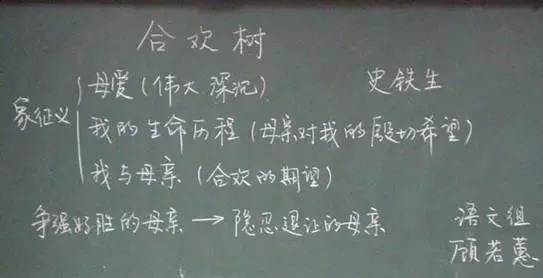 合欢树
史铁生
象征义
母爱（伟大 深沉）
我的生命历程（母亲对我的殷切希望）
我与母亲（合欢的期望）
争强好胜的母亲→隐忍退让的母亲
语文组
顾若蕙